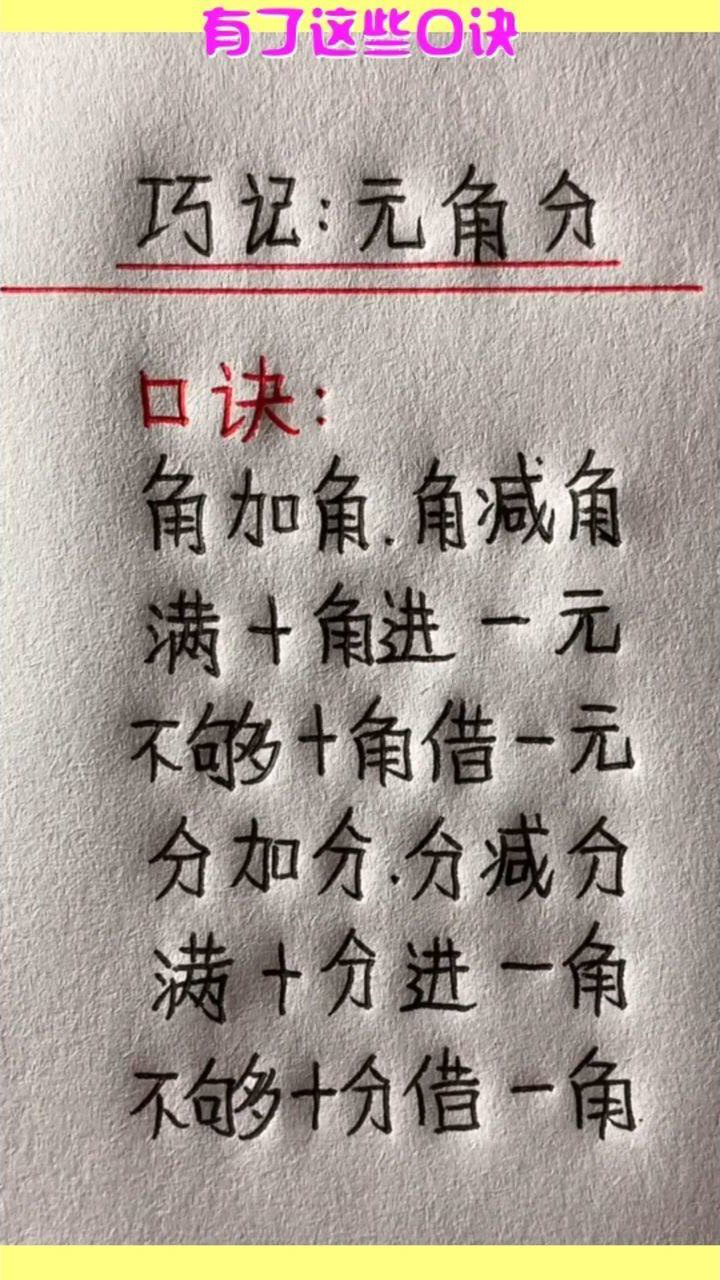 有了这些口诀
巧记:元角分
口诀:
角加角.角减角
满十角进一元
不够十角借一元
分加分.分减分
满十分进一角
不够十分借一角